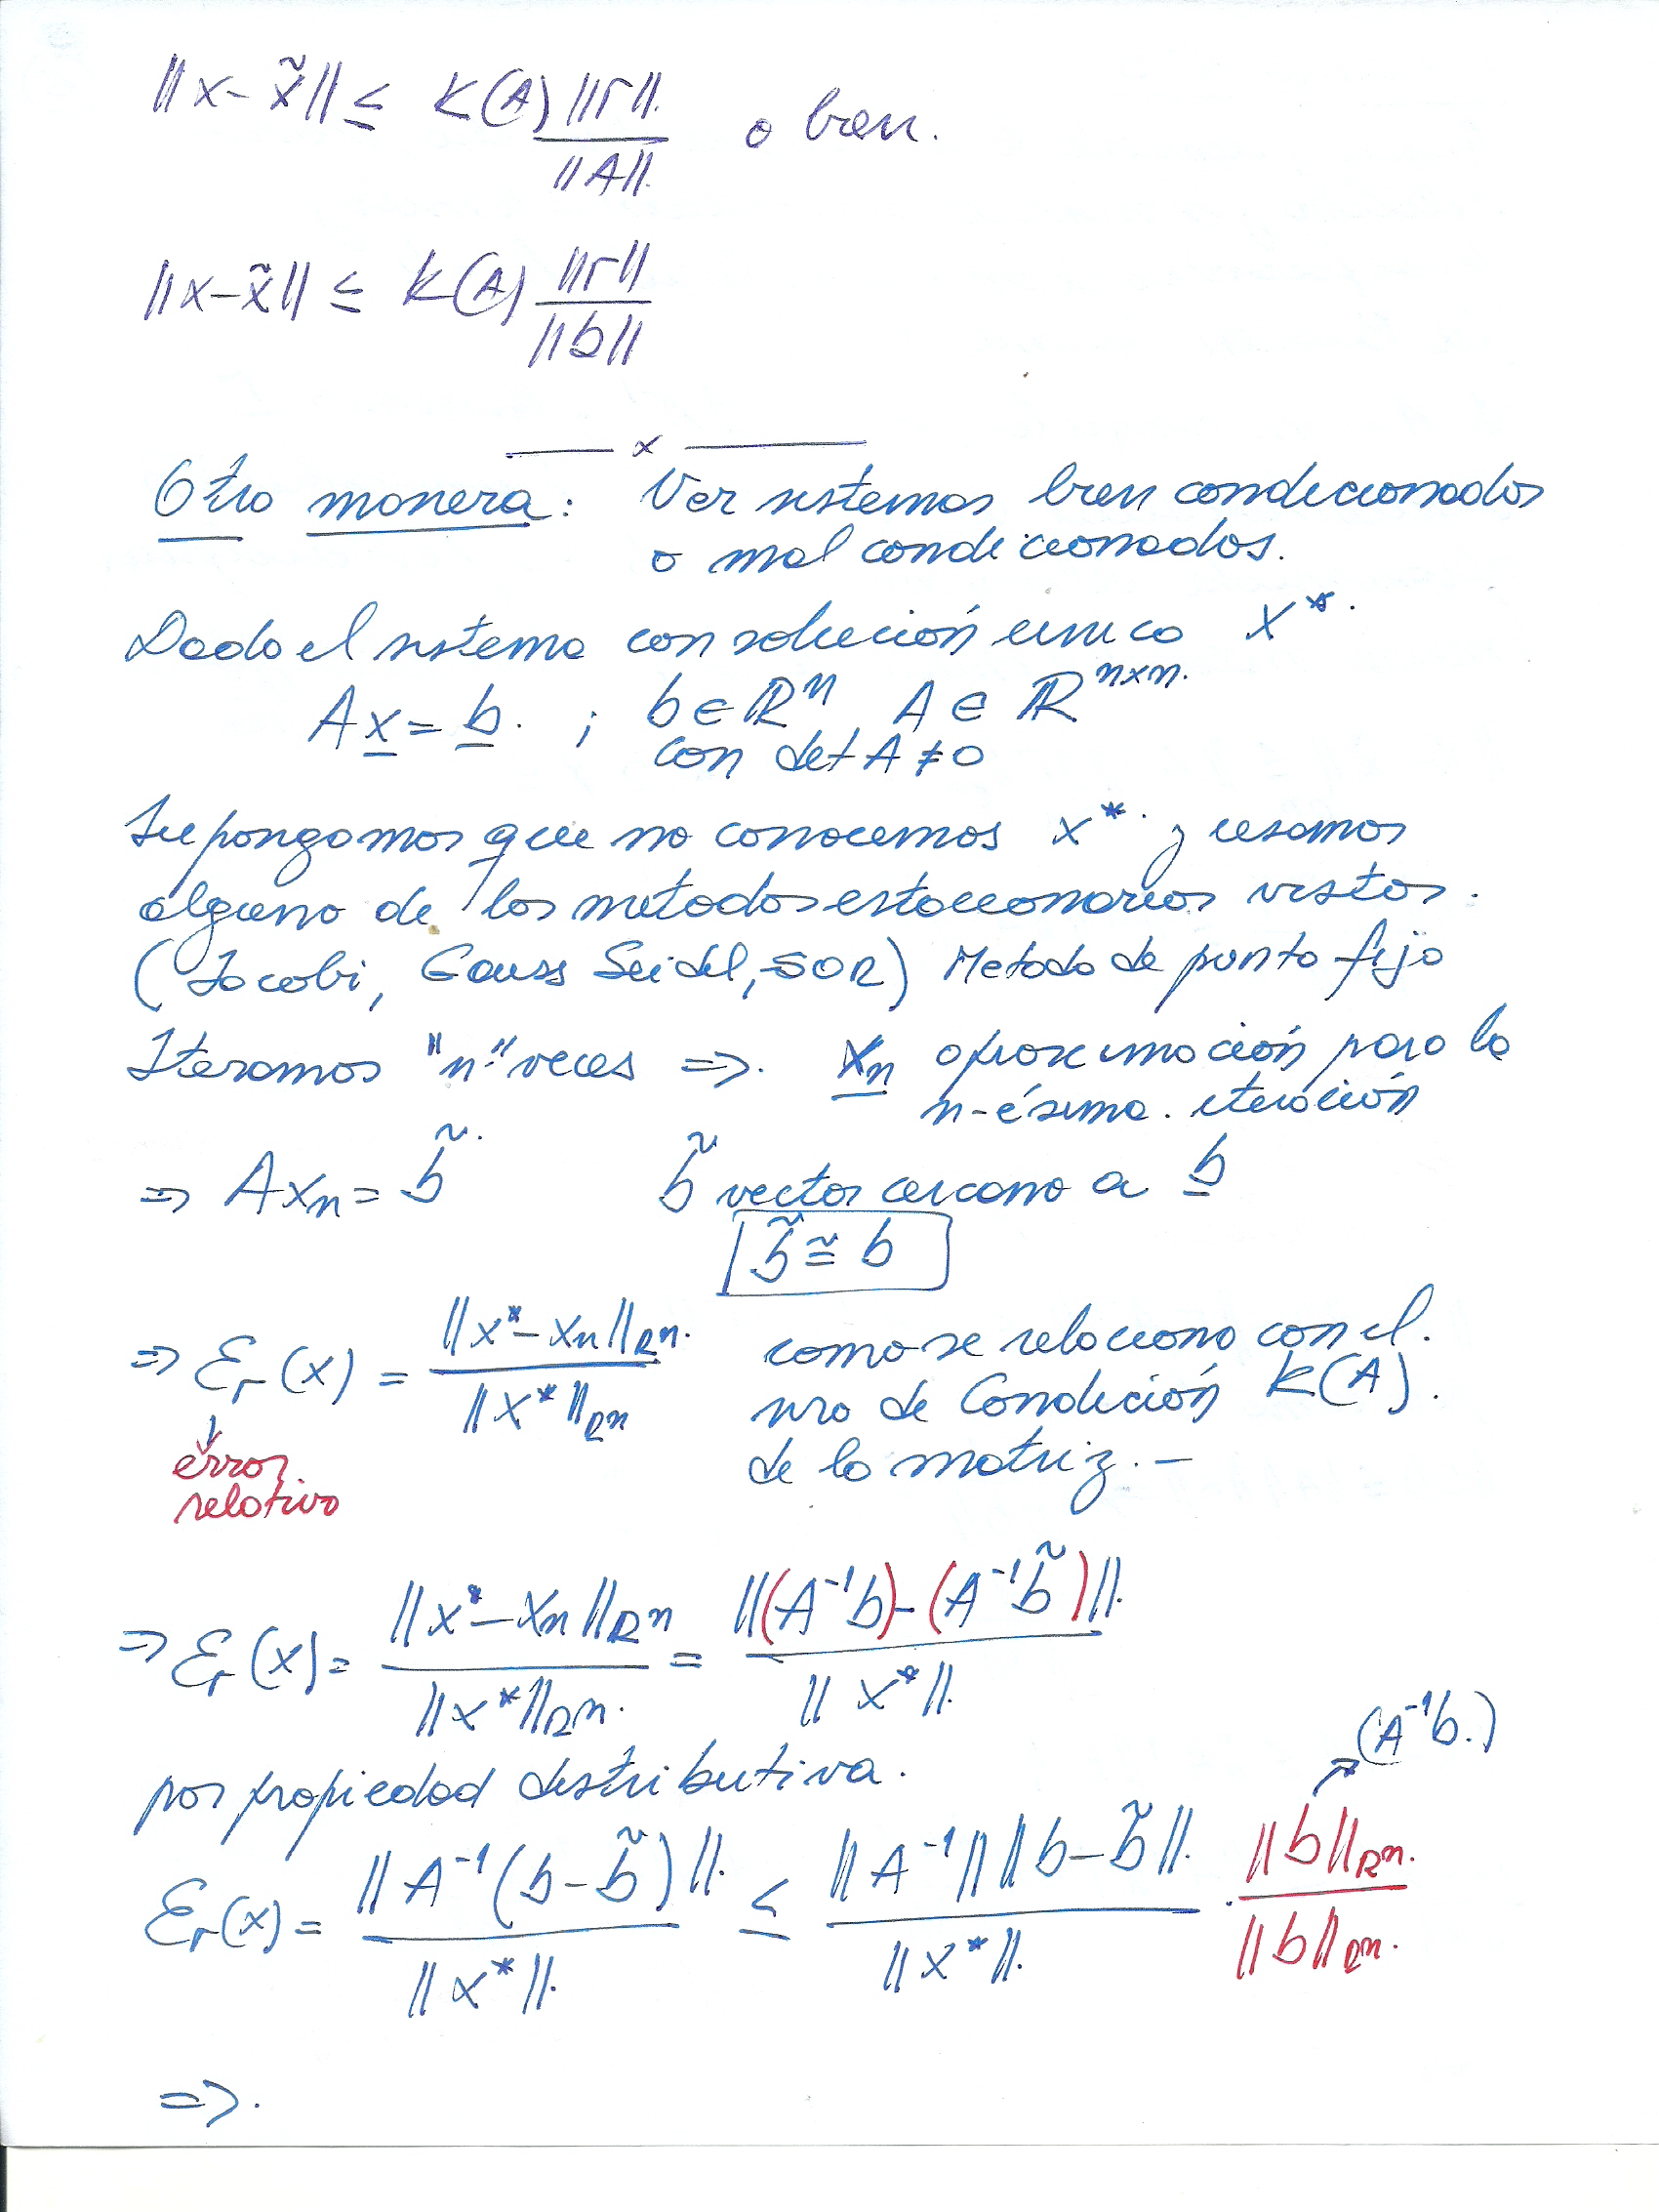 ||x-x̃|| ≤ K(A) ||r|| / ||A|| o bien.
||x-x̃|| ≤ K(A) ||r|| / ||b||
—— x ——
Otra manera: Ver sistemas bien condicionados
o mal condicionados.
Dado el sistema con solución unica x*.
Ax = b. ; b ∈ ℝⁿ, A ∈ ℝⁿˣⁿ.
con det A ≠ 0
Supongamos que no conocemos x* y usamos
alguno de los metodos estacionarios vistos.
(Jacobi, Gauss Seidel, SOR) Metodo de punto fijo
Iteramos "n" veces ⇒. xₙ aproximación para la
n-ésima. iteración
⇒ Axₙ = b̃ b̃ vector cercano a b
b̃ ≅ b
⇒ Ɛr(x) = ||x*-xₙ||ℝⁿ / ||x*||ℝⁿ como se relaciona con el.
nro de Condición K(A).
de la matriz.-
error
relativo
⇒ Ɛr(x) = ||x*-xₙ||ℝⁿ / ||x*||ℝⁿ = ||(A⁻¹b)-(A⁻¹b̃)|| / ||x*||
(A⁻¹b.)
por propiedad distributiva.
Ɛr(x) = ||A⁻¹(b-b̃)|| / ||x*|| ≤ ||A⁻¹|| ||b-b̃|| / ||x*|| . ||b||ℝⁿ / ||b||ℝⁿ
⇒.